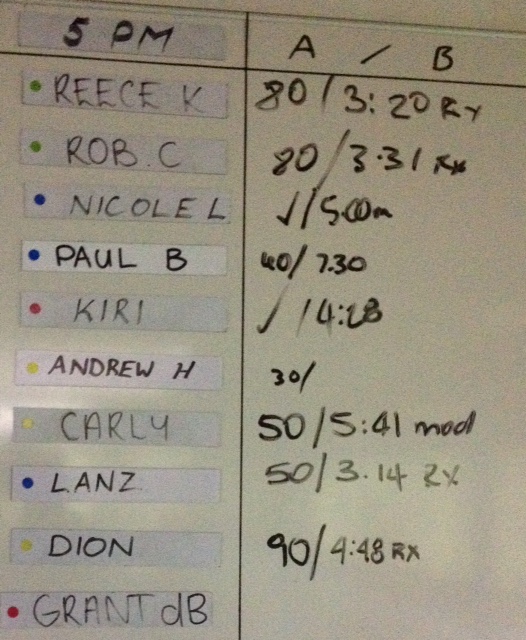 5 PM A / B
REECE K 80 / 3:20 Rx
ROB.C 80 / 3.31 Rx
NICOLE L ✓/5.00m
PAUL B 40/ 7.30
KIRI ✓ / 4:28
ANDREW H 30/
CARLY 50/5:41 mod
LANZ 50/3.14 RX
DION 90/4:48 RX
GRANT dB